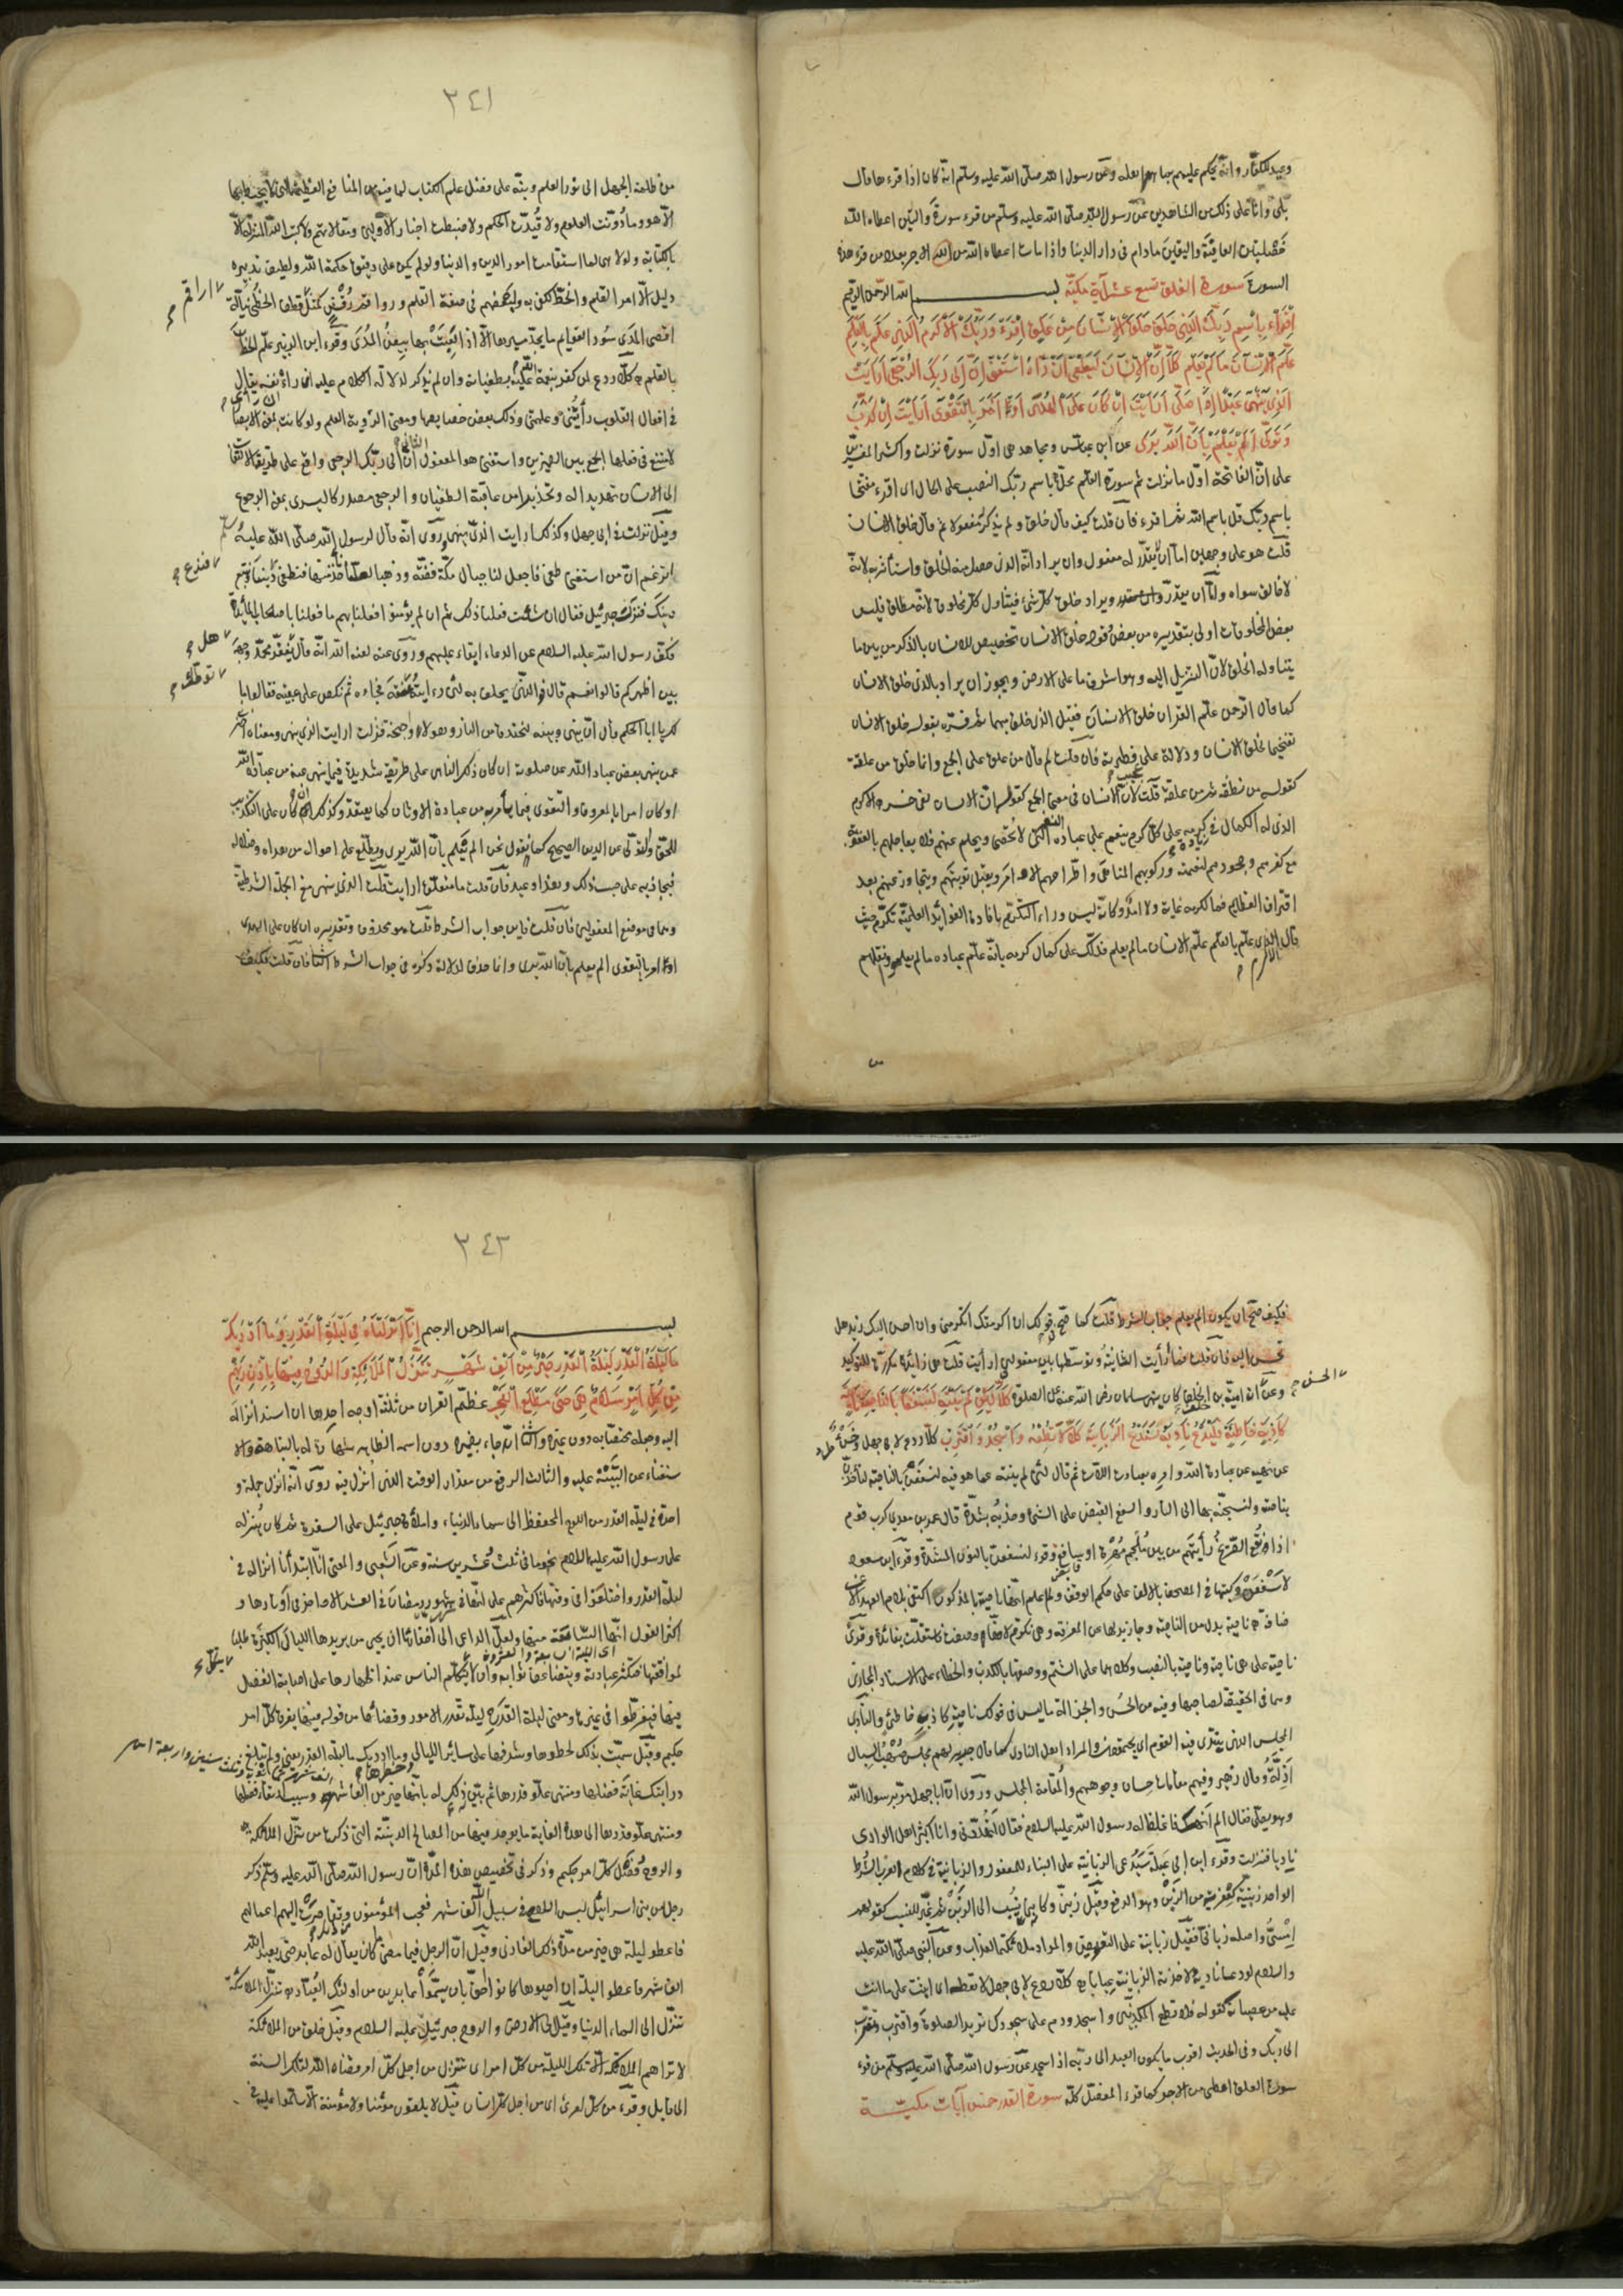 وعيد للكفار وانه يحكم عليهم بما هم اهله وعن رسول الله صلى الله عليه وسلم انه كان اذا قرءها قال
بلى وانا على ذلك من الشاهدين عن رسول الله صلى الله عليه وسلم من قرء سورة والتين اعطاه الله
خصلتين العافية واليقين مادام في دار الدنيا واذا مات اعطاه الله من الاجر بعدد من قرء هذه
السورة سورة العلق تسع عشر آية مكية بسم الله الرحمن الرحيم
اقرء باسم ربك الذي خلق خلق الانسان من علق اقرء وربك الاكرم الذي علم بالقلم
علم الانسان ما لم يعلم كلا ان الانسان ليطغى ان رءاه استغنى ان الى ربك الرجعى ارايت
الذي ينهى عبدا اذا صلى ارايت ان كان على الهدى او امر بالتقوى ارايت ان كذب
وتولى الم يعلم بان الله يرى عن ابن عباس ومجاهد هي اول سورة نزلت واكثر المفسرين
على ان الفاتحة اول ما نزلت ثم سورة القلم محل باسم ربك النصب على الحال اى اقرء مفتتحا
باسم ربك قل باسم الله ثم اقرء فان قلت كيف قال خلق ولم يذكر مفعولا ثم قال خلق الانسان
قلت هو على وجهين اما ان لا يقدر له مفعول وان يراد انه الذى حصل منه الخلق واستأثر به لا
خالق سواه واما ان يقدر ويراد خلق كل شيء فيتناول كل مخلوق لانه مطلق فليس
بعض المخلوقات اولى بتقديره من بعض وقوله خلق الانسان تخصيص للانسان بالذكر من بين ما
يتناوله الخلق لان التنزيل اليه وهو اشرف ما على الارض ويجوز ان يراد بالذى خلق الانسان
كما قال الرحمن علم القران خلق الانسان فقيل الذى خلق مبهما ثم فسره بقوله خلق الانسان
تفخيما لخلق الانسان ودلالة على عجيب فطرته فان قلت لم قال من علق على الجمع وانما خلق من علقة
كقوله من نطفة ثم من علقة قلت لان الانسان في معنى الجمع كقوله ان الانسان لفى خسر الاكرم
الذى له الكمال في زيادة كرمه على كل كرم ينعم على عباده النعم التى لا تحصى ويحلم عنهم فلا يعاجلهم بالعقوبة
مع كفرهم وجحودهم لنعمه وركوبهم المناهى واطراحهم الاوامر ويقبل توبتهم ويتجاوز عنهم بعد
اقتراف العظائم فما لكرمه غاية ولا امد وكانه ليس وراء التكرم بافادة الفوائد العلمية تكرم حيث
قال الاكرم الذى علم بالقلم علم الانسان ما لم يعلم فدل على كمال كرمه بانه علم عباده ما لم يعلموا ونقلهم
٣٤١
من ظلمة الجهل الى نور العلم ونبه على فضل علم الكتاب لما فيه من المنافع العظيمة التى لا يحيط بها
الا هو وما دونت العلوم ولا قيدت الحكم ولا ضبطت اخبار الاولين ومقالاتهم ولا كتب الله المنزلة الا
بالكتابة ولولا هى لما استقامت امور الدين والدنيا ولو لم يكن على دقيق حكمة الله ولطيف تدبيره
دليل الا امر القلم والخط لكفى به ولبعضهم في صفة القلم ورواقم رقش كمثل اراقم قطف الخطى نيالة
اقصى المدى سود القوائم ما يجد مسيرها الا اذا لعبت بها بيض المدى وقرء ابن الزبير علم الخط
بالقلم كلا ردع لمن كفر بنعمة الله عليه بطغيانه وان لم يذكر لدلالة الكلام عليه ان رءاه ان رأى نفسه يقال
في افعال القلوب رأيتنى وعلمتنى وذلك بعض خصائصها ومعنى الرؤية العلم ولو كانت بمعنى الابصار
لامتنع في فعلها الجمع بين الضميرين واستغنى هو المفعول الثانى ان الى ربك الرجعى واقع على طريقة الالتفات
الى الانسان تهديدا له وتحذيرا من عاقبة الطغيان والرجعى مصدر كالبشرى بمعنى الرجوع
وقيل نزلت في ابى جهل وكذلك ارايت الذى ينهى وروى انه قال لرسول الله صلى الله عليه وسلم
اتزعم ان من استغنى طغى فاجعل لنا جبال مكة فضة وذهبا لعلنا نأخذ منها فنطغى فندع ديننا ونتبع
دينك فنزل جبرئيل فقال ان شئت فعلنا ذلك ثم ان لم يؤمنوا فعلنا بهم ما فعلنا باصحاب المائدة
فكف رسول الله عليه السلام عن الدعاء ابقاء عليهم وروى عنه لعنه الله انه قال هل يعفر محمد وجهه
بين اظهركم قالوا نعم قال فوالذى يحلف به لئن رءايته توطأت عنقه فجاءه ثم نكص على عقبيه فقالوا ما
لك يا ابا الحكم قال ان بينى وبينه لخندقا من النار وهولا واجنحة فنزلت ارايت الذى ينهى ومعناه اخبرنى
عمن ينهى بعض عباد الله عن صلوته ان كان ذلك الناهى على طريقة سديدة فيما ينهى عنه من عبادة الله
او كان امرا بالمعروف والتقوى فيما يأمر به من عبادة الاوثان كما يعتقد وكذلك ان كان على التكذيب
للحق والتولى عن الدين الصحيح كما نقول نحن الم يعلم بان الله يرى ويطلع على احواله من هداه وضلاله
فيجازيه على حسب ذلك وهذا وعيد فان قلت ما متعلق ارايت قلت الذى ينهى مع الجملة الشرطية
وهما في موضع المفعولين فان قلت فاين جواب الشرط قلت هو محذوف وتقديره ان كان على الهدى
او امر بالتقوى الم يعلم بان الله يرى وانما حذف لدلالة ذكره في جواب الشرط الثانى فان قلت فكيف
فكيف صح ان يكون الم يعلم جواب الشرط قلت كما صح في قولك ان اكرمتك اتكرمنى وان احسن اليك زيد هل
تحسن اليه فان قلت فما ارأيت الثانية وتوسطها بين مفعولى ارأيت قلت هى زائدة مكررة للتوكيد
وعن الحسن انه امية بن خلف كان ينهى سلمان رضى الله عنه عن الصلوة كلا لئن لم ينته لنسفعا بالناصية ناصية
كاذبة خاطئة فليدع ناديه سندع الزبانية كلا لا تطعه واسجد واقترب كلا ردع لابى جهل
عن نهيه عن عبادة الله وامره بعبادة اللات ثم قال لئن لم ينته عما هو فيه لنسفعن بالناصية لنأخذن
بناصيته ولنسحبنه بها الى النار والسفع القبض على الشئ وجذبه بشدة قال عمرو بن معديكرب قوم
اذا نقع الصريخ رأيتهم من بين ملجم مهره او سافع وقرء لنسفعن بالنون المشددة وقرء ابن مسعود
لاسفعن وكتبتها في المصحف بالالف على حكم الوقف ولما علم انها ناصية المذكور اكتفى بلام العهد عن الا
ضافة ناصية بدل من الناصية وجاز بدلها عن المعرفة وهى نكرة لانها وصفت فاستقلت بفائدة وقرئ
ناصية على هى ناصية وناصية بالنصب وكلاهما على الشتم ووصفها بالكذب والخطاء على الاسناد المجازى
وهما في الحقيقة لصاحبها وفيه من الحسن والجزالة ما ليس في قولك ناصية كاذب خاطئ والنادى
المجلس الذى ينتدى فيه القوم اى يجتمعون والمراد اهل النادى كما قال جرير لهم مجلس صهب السبال
اذلة وقال زهير وفيهم مقامات حسان وجوههم والمقامة المجلس وروى ان ابا جهل مر برسول الله
وهو يصلى فقال الم انهك فاغلظ له رسول الله عليه السلام فقال اتهددنى وانا اكثر اهل الوادى
ناديا فنزلت وقرء ابن ابى عبلة سيدعى الزبانية على البناء للمفعول والزبانية في كلام العرب الشرط
الواحد زبنية كعفرية من الزبن وهو الدفع وقيل زبنى وكانه نسب الى الزبن ثم غير للنسب كقولهم
امسى واصله زبانى فقيل زبانية على التعويض والمراد ملائكة العذاب وعن النبى صلى الله عليه
والسلام لو دعا ناديه لاخذته الزبانية عيانا كلا ردع لابى جهل لا تطعه اى اثبت على ما انت
عليه من عصيانه كقوله فلا تطع المكذبين واسجد ودم على سجودك يريد الصلوة واقترب وتقرب
الى ربك وفى الحديث اقرب ما يكون العبد الى ربه اذا سجد عن رسول الله صلى الله عليه وسلم من قرء
سورة العلق اعطى من الاجر كما قرء المفصل كله سورة القدر خمس آيات مكية
٣٤٣
بسم الله الرحمن الرحيم انا انزلناه في ليلة القدر وما ادريك
ما ليلة القدر ليلة القدر خير من الف شهر تنزل الملائكة والروح فيها باذن ربهم
من كل امر سلام هى حتى مطلع الفجر عظم القران من ثلثة اوجه احدها ان اسند انزاله
اليه وجعله مختصا به دون غيره والثانى انه جاء بضميره دون اسمه الظاهر شهادة له بالنباهة والا
ستغناء عن التنبيه عليه والثالث الرفع من مقدار الوقت الذى انزل فيه روى انه انزل جملة و
احدة في ليلة القدر من اللوح المحفوظ الى سماء الدنيا واملأه جبرئيل على السفرة ثم كان ينزله
على رسول الله عليه السلام نجوما في ثلث وعشرين سنة وعن الشعبى والمعنى انا ابتدأنا انزاله في
ليلة القدر واختلفوا في وقتها فاكثرهم على انها في شهر رمضان في العشر الاواخر في اوتارها و
اكثر القول انها السابعة منها ولعل الداعى الى اخفائها ان يحيى من يريدها الليالى الكثيرة طلبا
لموافقتها فتكثر عبادته ويتضاعف ثوابه وان لا يتكل الناس عند اظهارها على اصابة الفضل
فيها فيفرطوا في غيرها ومعنى ليلة القدر ليلة تقدير الامور وقضائها من قوله فيها يفرق كل امر
حكيم وقيل سميت بذلك لخطرها وشرفها على سائر الليالى وما ادريك ما ليلة القدر يعنى ولم تبلغ
درايتك غاية فضلها ومنتهى علو قدرها ثم بين ذلك له بانها خير من الف شهر وسبب ارتقاء فضلها
ومنتهى علو قدرها الى هذه الغاية ما يوجد فيها من المصالح الدينية التى ذكرها من تنزل الملائكة
والروح وفصل كل امر حكيم وذكر في تخصيص هذه المدة ان رسول الله صلى الله عليه وسلم ذكر
رجلا من بنى اسرائيل لبس السلاح في سبيل الله الف شهر فعجب المؤمنون وتقاصرت اليهم اعمالهم
فاعطوا ليلة هى خير من مدة ذلك الغازى وقيل ان الرجل فيما مضى ما كان يقال له عابد حتى يعبد الله
الف شهر فاعطوا ليلة ان احيوها كانوا احق بان يسموا عابدين من اولئك العباد تنزل الملائكة
تنزل الى السماء الدنيا وقيل الى الارض والروح جبرئيل عليه السلام وقيل خلق من الملائكة
لا تراهم الملائكة الا تلك الليلة من كل امر اى تتنزل من اجل كل امر قضاه الله لتلك السنة
الى قابل وقرء من كل امرئ اى من اجل كل انسان قيل لا يلقون مؤمنا ولا مؤمنة الا سلموا عليه في